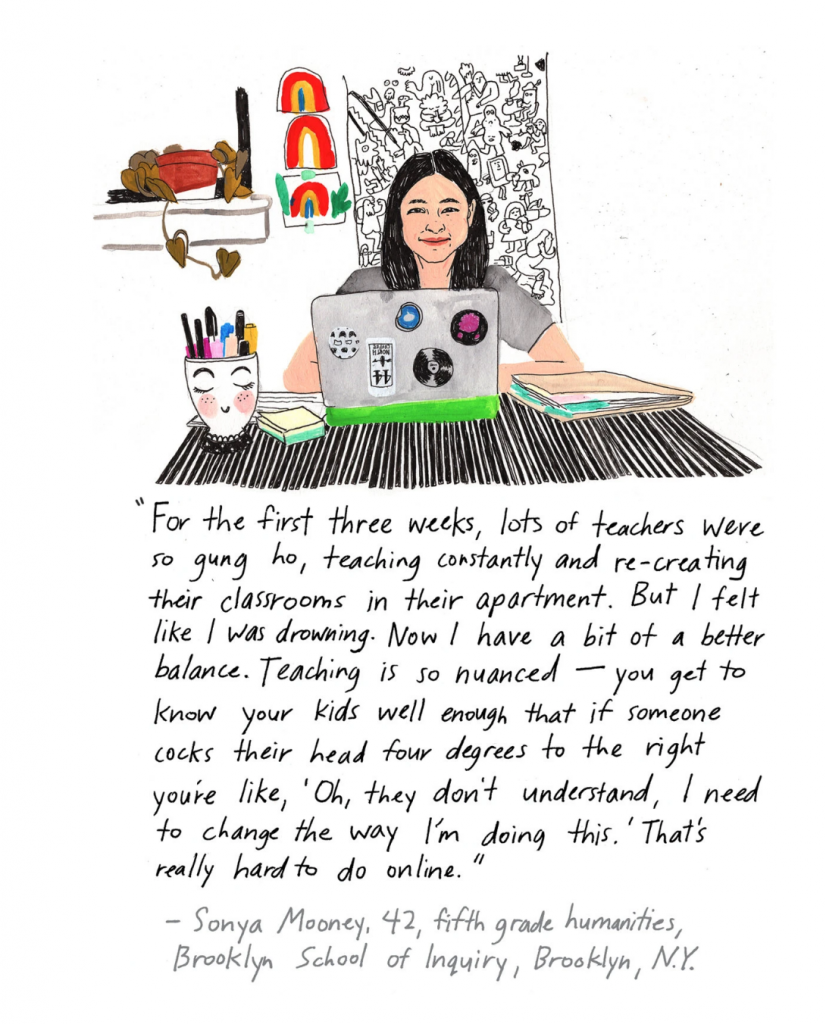 "For the first three weeks, lots of teachers were
so gung ho, teaching constantly and re-creating
their classrooms in their apartment. But I felt
like I was drowning. Now I have a bit of a better
balance. Teaching is so nuanced — you get to
know your kids well enough that if someone
cocks their head four degrees to the right
you're like, 'Oh, they don't understand, I need
to change the way I'm doing this.' That's
really hard to do online."
- Sonya Mooney, 42, fifth grade humanities,
Brooklyn School of Inquiry, Brooklyn, N.Y.